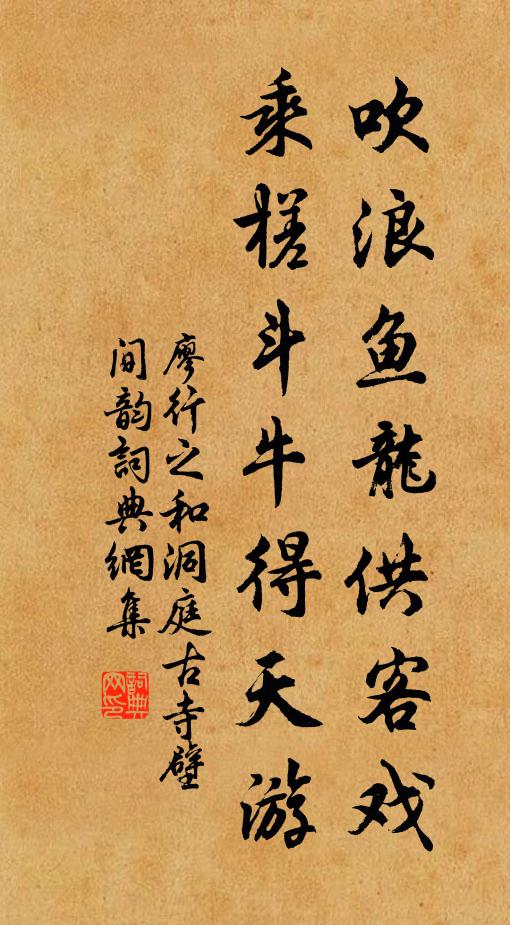 吹浪鱼龍供客戏
乘槎斗牛得天游
廖行之和洞庭古寺壁
间韵詞典網集
詞典网印